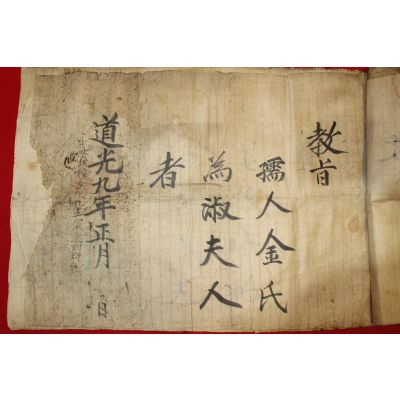 教旨
孺人金氏
為淑夫人
者
道光九年正月 日